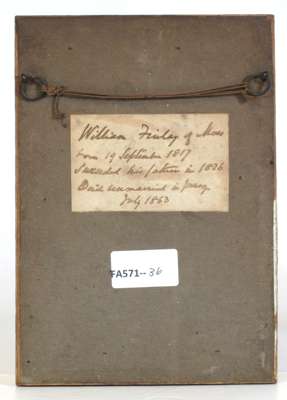 William Finlay of Moss
born 19 September 1817
Succeeded his father in 1836
Died unmarried in Jersey
July 1863
FA571--36